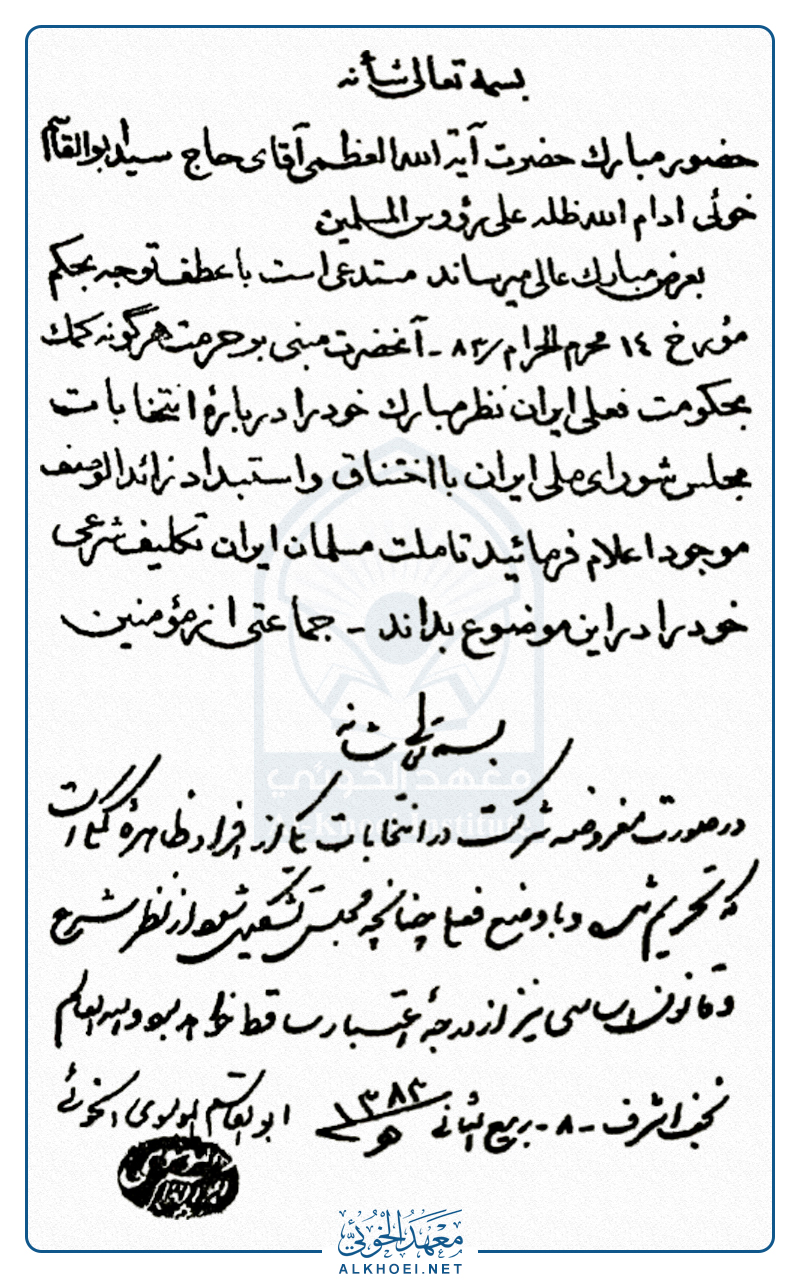 بسمه تعالی شأنه
حضور مبارك حضرت آیة الله العظمی آقای حاج سید ابوالقاسم
خوئی ادام الله ظله علی رؤوس المسلمین
بعرض مبارك عالی میرساند مستدعی است با عطف توجه بحکم
مؤرخ ١٤ محرم الحرام ٨٣ - آنحضرت مبنی بر حرمت هرگونه کمك
بحکومت فعلی ایران نظر مبارك خود را دربارهٔ انتخابات
مجلس شورای ملی ایران با اختناق و استبداد زائد الوصف
موجود اعلام فرمائید تا ملت مسلمان ایران تکلیف شرعی
خود را در این موضوع بداند - جماعتی از مؤمنین
بسمه تعالی شانه
در صورت مفروضه شرکت در انتخابات یکی از افراد ظاهرهٔ کمك است
که تحریم شده و با وضع فعلی چنانچه مجلس تشکیل شود از نظر شرع
و قانون اساسی نیز از درجهٔ اعتبار ساقط خواهد بود والله العالم
نجف اشرف - ٨ - ربیع الثانی ١٣٨٣ هـ ابوالقاسم الموسوی الخوئی
معهد الخوئي
Al-Khoei Institute
معهد الخوئي
ALKHOEI.NET